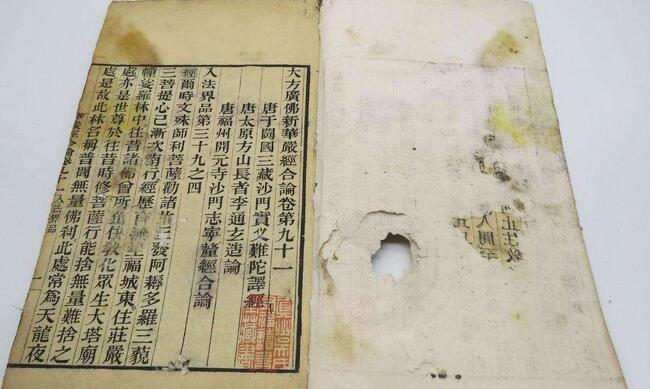 大方廣佛新華嚴經合論卷第九十一
唐于闐國三藏沙門實叉難陀譯經
唐太原方山長者李通玄造論
唐福州開元寺沙門志寧釐經合論
入法界品第三十九之四
經爾時文殊師利菩薩勸諸發阿耨多羅三藐
三菩提心已漸次南行經歷福城東住莊嚴
幢娑羅林中往昔諸佛曾所化眾生大塔廟
處亦是世尊於往昔時修菩薩行能捨無量難捨之
處是故此林名稱普聞無量佛刹此處常為天龍夜
入法界品
一
止住教
人間至